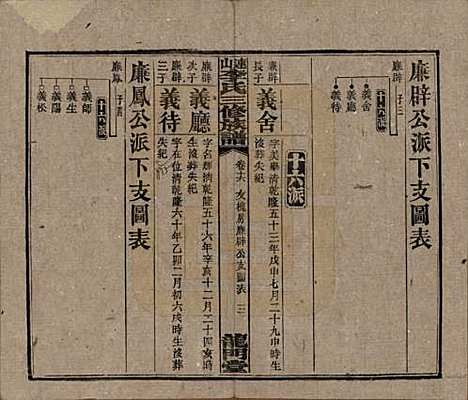 廉辟公派下支圖表
廉辟 子三
十六派
義舍
義廳
義待
十六派
廉辟長子
義舍
字美舉清乾隆五十三年戊申七月二十九申時生
後葬失紀
廉辟次子
義廳
字名輝清乾隆五十六年辛亥十二月二十四亥時
生後葬失紀
廉辟三子
義待
字在位清乾隆六十年乙卯二月初六戌時生後葬
失紀
連山李氏二修族譜
卷十六
龍門堂
廉鳳公派下支圖表
廉鳳 子四
十六派
義師
義生
義陽
義松